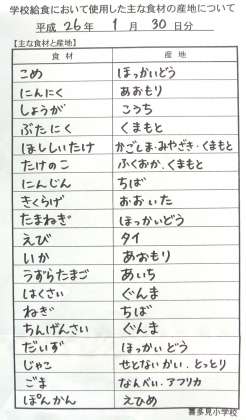 学校給食において使用した主な食材の産地について
平成 26年 1月 30日分
【主な食材と産地】
食材 産地
こめ ほっかいどう
にんにく あおもり
しょうが こうち
ぶたにく くまもと
ほししいたけ かごしま・みやざき・くまもと
たけのこ ふくおか、くまもと
にんじん ちば
きくらげ おおいた
たまねぎ ほっかいどう
えび タイ
いか あおもり
うずらたまご あいち
はくさい ぐんま
ねぎ ちば
ちんげんさい ぐんま
だいず ほっかいどう
じゃこ せとないかい、とっとり
ごま なんべい、アフリカ
ぽんかん えひめ
喜多見小学校